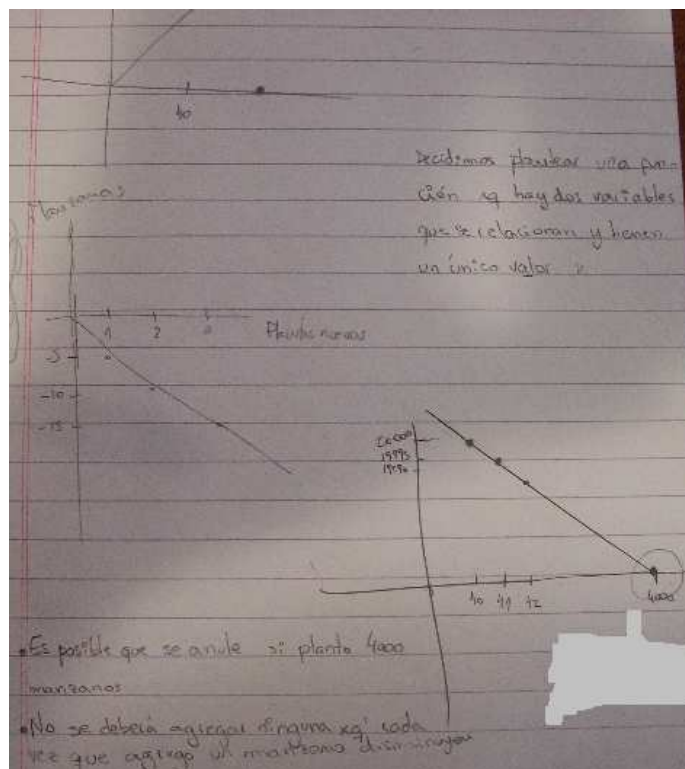 40
Decidimos plantear una fun-
ción xq hay dos variables
que se relacionan y tienen
un único valor
Manzanas
1 2 3 Plantas nuevas
-5
-10
-15
20000
19995
19990
40 41 42 4000
• Es posible que se anule si planto 4000
manzanos
• No se deberá agregar ninguna xq' cada
vez que agrego un manzano disminuyen